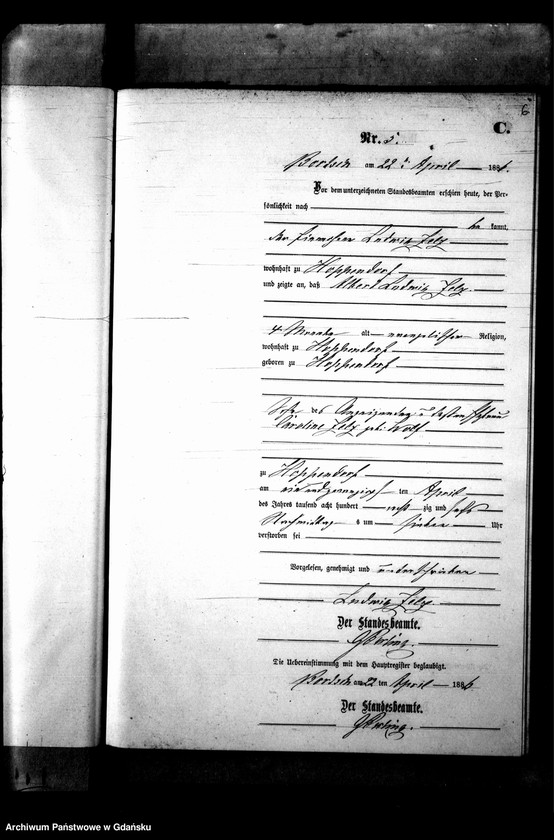 6
C.
Nr. 5.
Bortsch am 22ten April 1886.
Vor dem unterzeichneten Standesbeamten erschien heute, der Per-
sönlichkeit nach
be kannt,
der Einwohner Ludwig Felz
wohnhaft zu Hoppendorf
und zeigte an, daß Albert Ludwig Felz
4 Monate alt evangelischer Religion,
wohnhaft zu Hoppendorf
geboren zu Hoppendorf
Sohn des Anzeigenden u dessen Ehefrau
Caroline Felz geb. Wolf
zu Hoppendorf
am ein und zwanzigsten April
des Jahres tausend acht hundert acht zig und sechs
Nachmittags um sieben Uhr
verstorben sei
Vorgelesen, genehmigt und unterschrieben
Ludwig Felz
Der Standesbeamte.
Die Uebereinstimmung mit dem Hauptregister beglaubigt.
Bortsch am 22 ten April 1886
Der Standesbeamte.
Archiwum Państwowe w Gdańsku